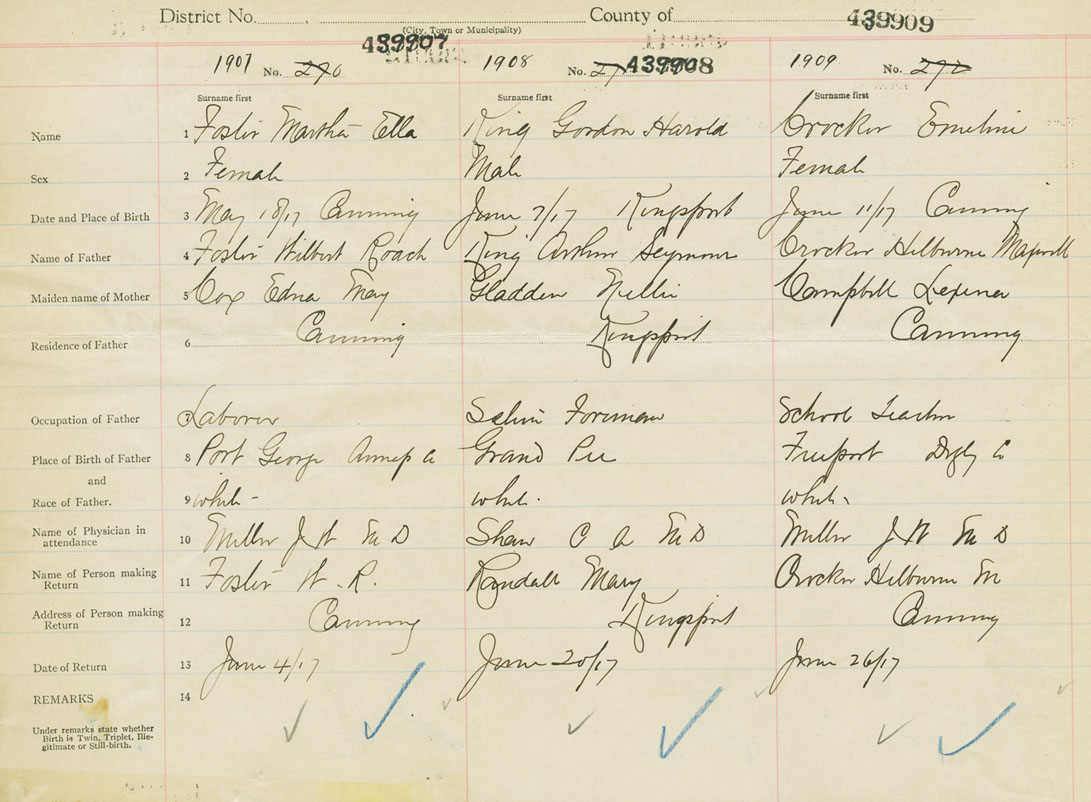 District No. County of 439909
(City, Town or Municipality)
439907
1907 No. 270 1908 No. 271 439908 1909 No. 272
Surname first Surname first Surname first
Name 1 Foster Martha Ella King Gordon Harold Crocker Emeline
Sex 2 Female Male Female
Date and Place of Birth 3 May 18/17 Canning June 7/17 Kingsport June 11/17 Canning
Name of Father 4 Foster Wilbert Roach King Arthur Seymour Crocker Hilburne Maxwell
Maiden name of Mother 5 Cox Edna May Gladden Nellie Campbell Lexena
Residence of Father 6 Canning Kingsport Canning
Occupation of Father 7 Laborer Foreman School Teacher
Place of Birth of Father 8 Port George Annap Co Grand Pre Freeport Digby Co
and
Race of Father. 9 white white. white.
Name of Physician in
attendance 10 Miller J W M D Shaw C A M D Miller J W M D
Name of Person making
Return 11 Foster W. R. Randall Mary Crocker Hilburne M
Address of Person making
Return 12 Canning Kingsport Canning
Date of Return 13 June 4/17 June 20/17 June 26/17
REMARKS 14
Under remarks state whether
Birth is Twin, Triplet, Ille-
gitimate or Still-birth.